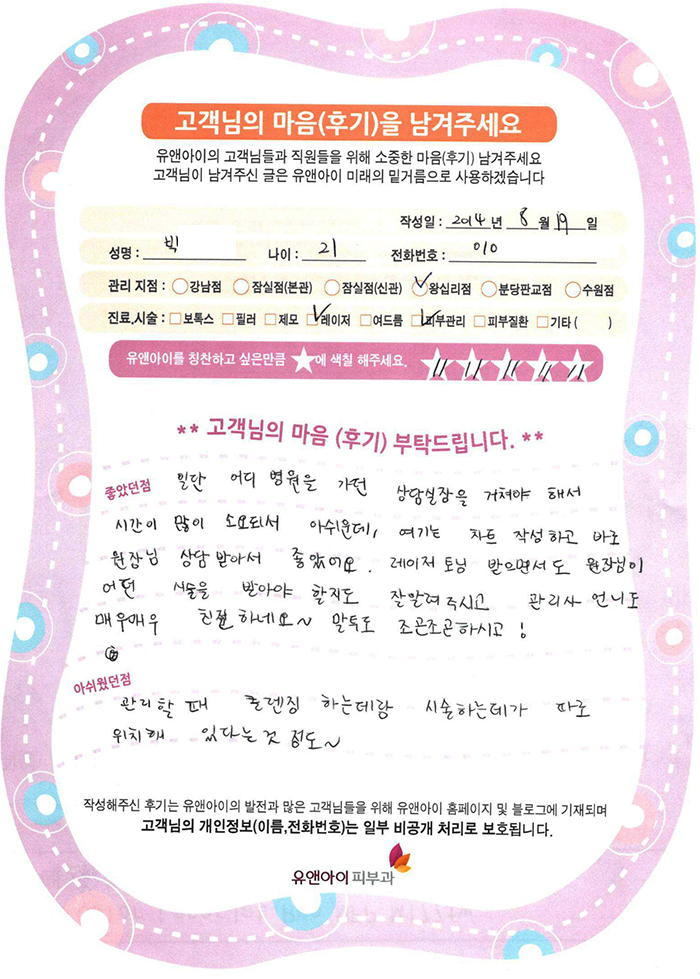 고객님의 마음(후기)을 남겨주세요
유앤아이의 고객님들과 직원들을 위해 소중한 마음(후기) 남겨주세요
고객님이 남겨주신 글은 유앤아이 미래의 밑거름으로 사용하겠습니다
작성일 : 2014 년 8 월 19 일
성명 : 박 나이 : 21 전화번호 : 010
관리 지점 : 강남점 잠실점(본관) 잠실점(신관) 왕십리점 분당판교점 수원점
진료,시술 : 보톡스 필러 제모 레이저 여드름 피부관리 피부질환 기타 ( )
유앤아이를 칭찬하고 싶은만큼 ★에 색칠 해주세요.
** 고객님의 마음 (후기) 부탁드립니다. **
좋았던점 일단 어디 병원을 가던 상담실장을 거쳐야 해서
시간이 많이 소요되서 아쉬운데, 여기는 차트 작성하고 바로
원장님 상담받아서 좋았어요. 레이저 토닝 받으면서도 원장님이
어떤 시술을 받아야 할지도 잘알려주시고 관리사 언니도
매우매우 친절하네요~ 말투도 조곤조곤하시고!
아쉬웠던점
관리할 때 클렌징 하는데랑 시술하는데가 따로
위치해 있다는것 정도~
작성해주신 후기는 유앤아이의 발전과 많은 고객님들을 위해 유앤아이 홈페이지 및 블로그에 기재되며
고객님의 개인정보(이름,전화번호)는 일부 비공개 처리로 보호됩니다.
유앤아이 피부과